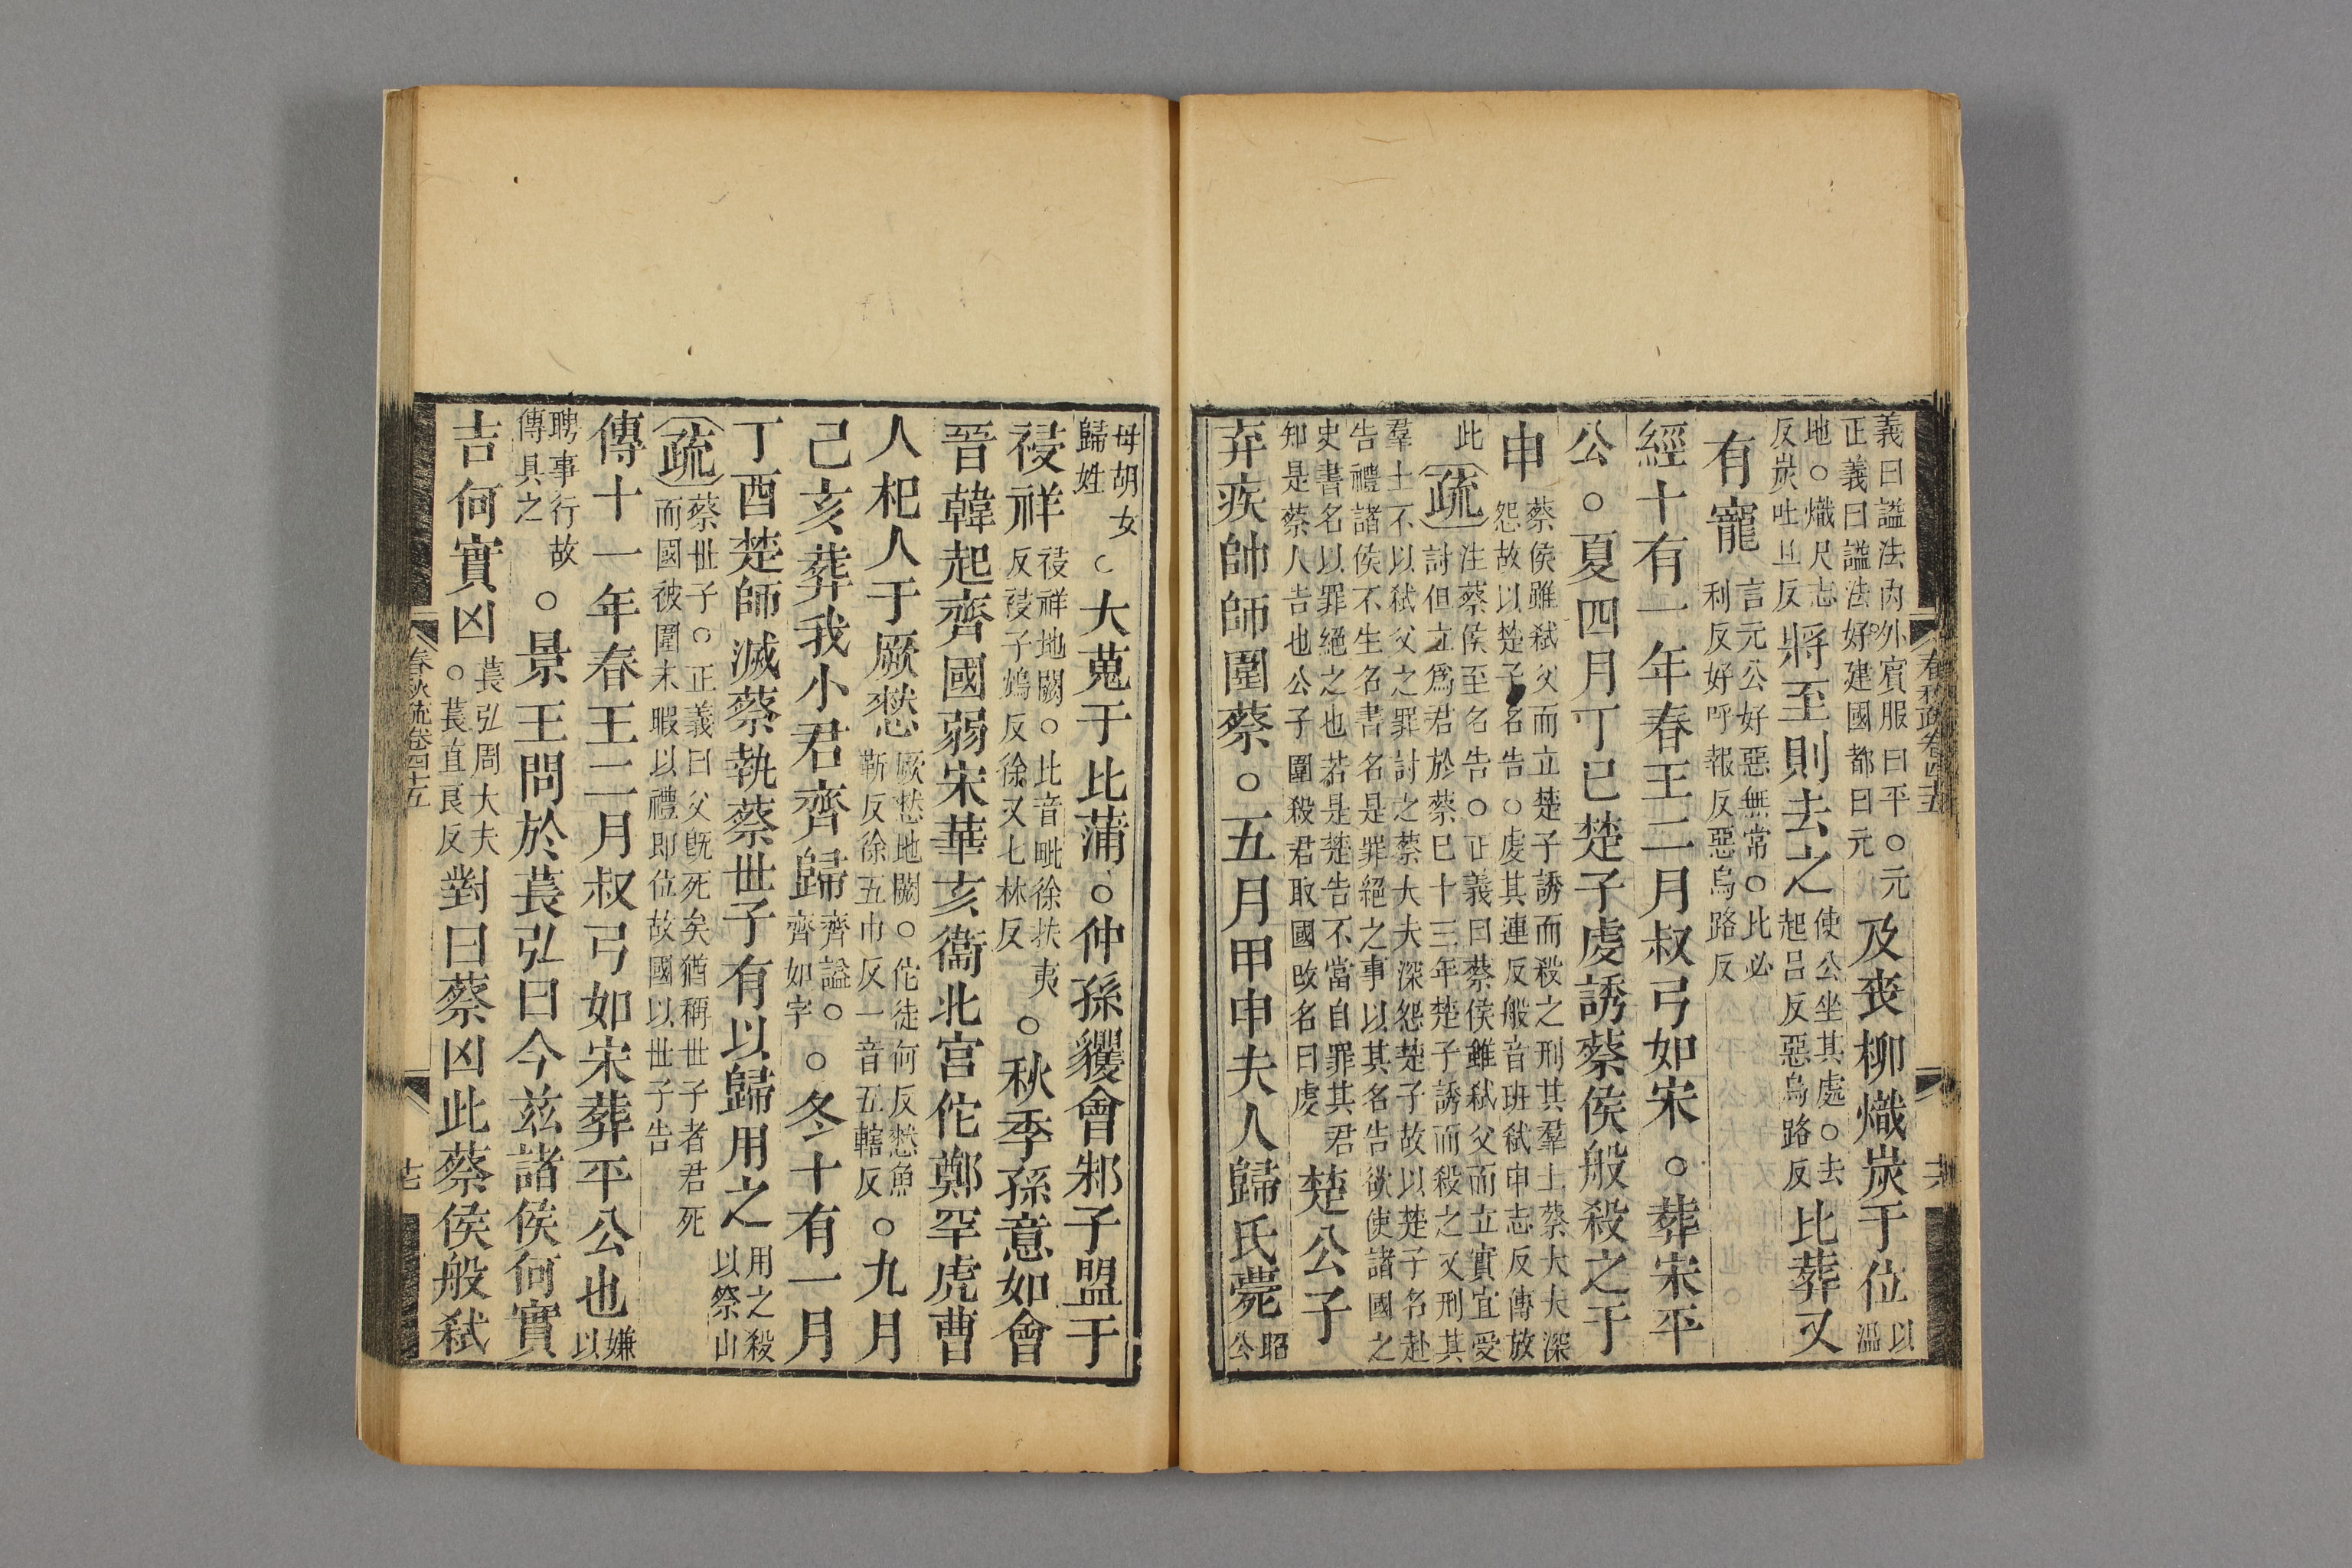 義曰謚法內外賓服曰平○元正義曰謚法好建國都曰元及喪柳熾炭于位以溫
地○熾尺志反炭吐旦反將至則去之使公坐其處○去起呂反惡烏路反比葬又
有寵言元公好惡無常○比必利反好呼報反惡烏路反
經十有一年春王二月叔弓如宋○葬宋平
公○夏四月丁巳楚子虔誘蔡侯般殺之于
申蔡侯雖弒父而立楚子誘而殺之刑其羣士蔡大夫深怨故以楚子名告○虔其連反般音班弒申志反傳放
此疏注蔡侯至名告○正義曰蔡侯雖弒父而立實宜受討但立爲君於蔡巳十三年楚子誘而殺之又刑其
羣士不以弒父之罪討之蔡大夫深怨楚子故以楚子名赴告禮諸侯不生名書名是罪絕之事以其名告欲使諸國之
史書名以罪絕之也若是楚告不當自罪其君知是蔡人告也公子圍殺君取國改名曰虔楚公子
弃疾帥師圍蔡○五月甲申夫人歸氏薨昭公
母胡女歸姓○大蒐于比蒲○仲孫貜會邾子盟于
祲祥祲祥地闕○比音毗徐扶夷反祲子鴆反徐又七林反○秋季孫意如會
晉韓起齊國弱宋華亥衞北宮佗鄭罕虎曹
人杞人于厥憖厥憖地闕○佗徒何反憖魚靳反徐五巾反一音五轄反○九月
己亥葬我小君齊歸齊謚○齊如字○冬十有一月
丁酉楚師滅蔡執蔡世子有以歸用之用之殺以祭山
疏蔡世子○正義曰父旣死矣猶稱世子者君死而國彼圍未暇以禮即位故國以世子告
傳十一年春王二月叔弓如宋葬平公也嫌以
聘事行故傳具之○景王問於萇弘曰今玆諸侯何實
吉何實凶萇弘周大夫○萇直良反對曰蔡凶此蔡侯般弒
春秋疏卷四十五
十七